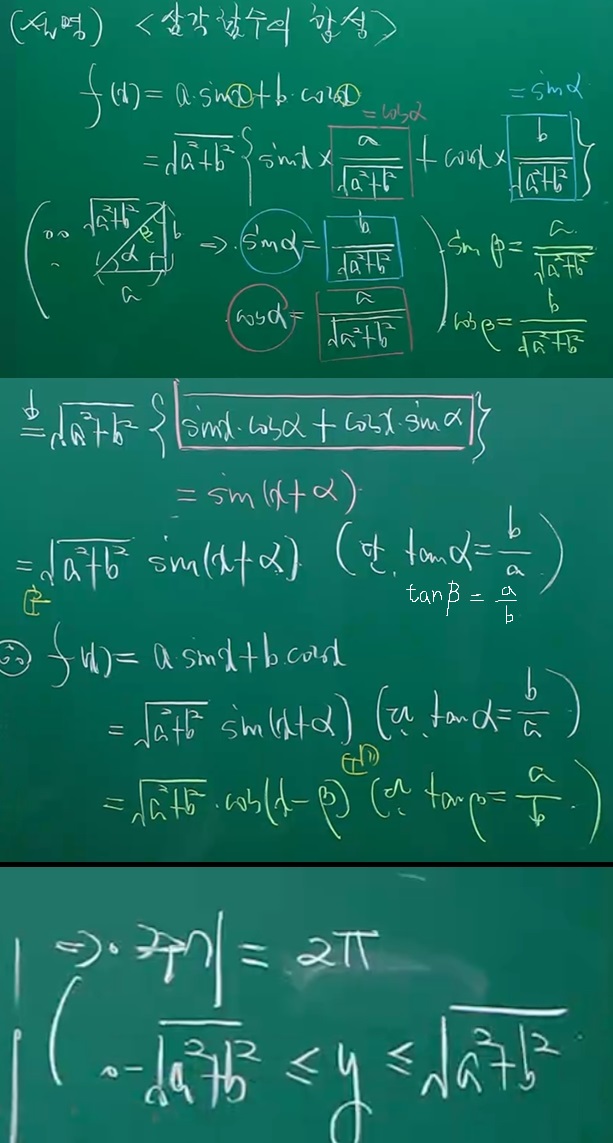 (설명) <삼각함수의 합성>
f(x) = a·sinx + b·cosx
= √(a²+b²) { sinx × a/√(a²+b²) + cosx × b/√(a²+b²) }
= cosα = sinα
(∵ √(a²+b²) β b α a ⇒ · sinα = b/√(a²+b²) sinβ = a/√(a²+b²)
· cosα = a/√(a²+b²) ) cosβ = b/√(a²+b²)
= √(a²+b²) { sinx·cosα + cosx·sinα }
= sin(x+α)
= √(a²+b²) sin(x+α) (단, tanα = b/a)
tanβ = a/b
∴ f(x) = a·sinx + b·cosx
= √(a²+b²) sin(x+α) (단, tanα = b/a)
= √(a²+b²)·cos(x-β) (단, tanβ = a/b)
⇒ · 주기 = 2π
· -√(a²+b²) ≤ y ≤ √(a²+b²)